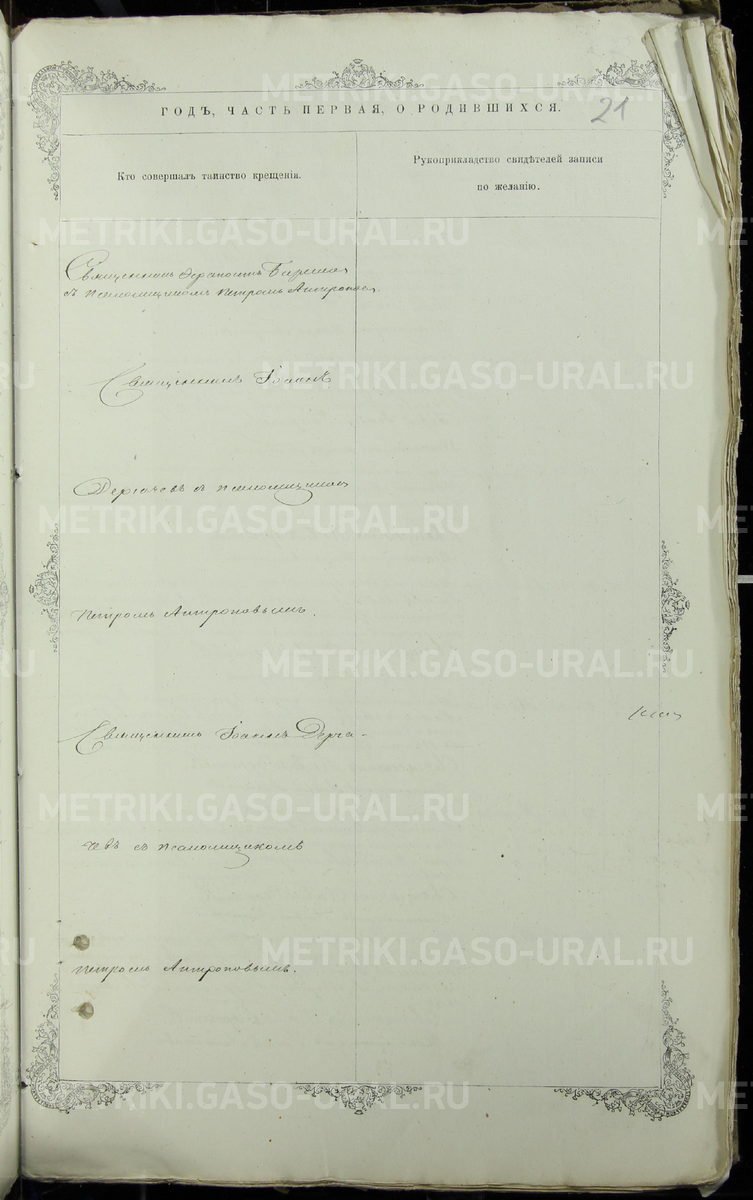 21
ГОДЪ, ЧАСТЬ ПЕРВАЯ, О РОДИВШИХСЯ.
Кто совершалъ таинство крещенія.
Рукоприкладство свидѣтелей записи
по желанію.
Священникъ
съ псаломщикомъ Петромъ Антропов
Священникъ Іоаннъ
Дергачевъ съ псаломщикомъ
Петромъ Антроповымъ.
Священникъ Іоаннъ Дерга-
чевъ съ псаломщикомъ
Петромъ Антроповымъ.
METRIKI.GASO-URAL.RU